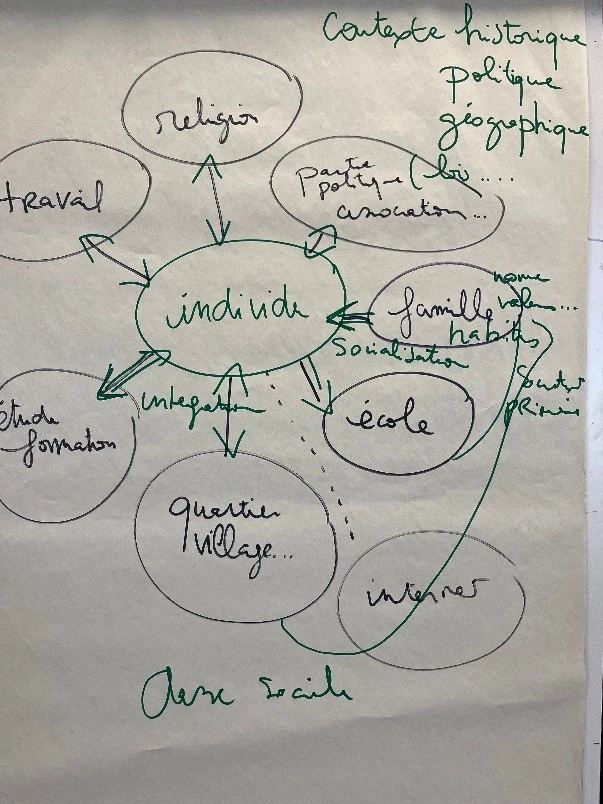 Contexte historique
politique
géographique
religion
partie
politique ( loi ....
association...
travail
individu
famille
norme
valeurs...
habitus
Socialisation
primaire
intégration
école
étude
formation
quartier
village...
internet
classe sociale